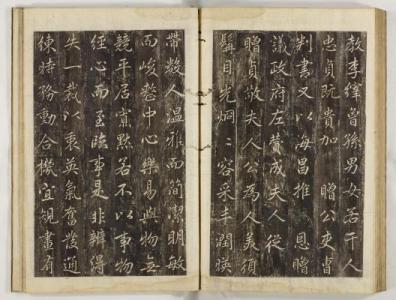 教李繹曾孫男女若干人
忠貞既貴加贈公吏曹
判書又以海昌推恩贈
議政府左贊成夫人從
贈貞敬夫人公為人美須
髯目光烱〻容采丰潤暎
帶數人溫雅而簡潔明敏
而峻整中心樂易與物無
競平居當默若不以事物
經心而至臨事是非辨得
失一裁以東英氣奮發通
練時務動合機宜規畫有